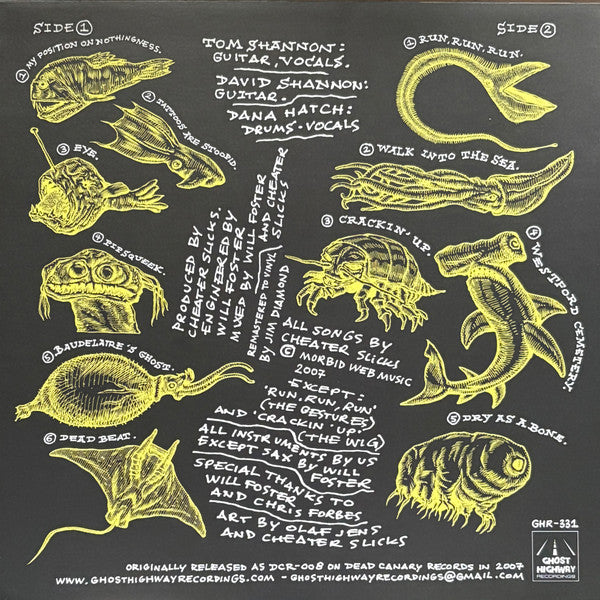 SIDE 1
1 MY POSITION ON NOTHINGNESS.
2 TATTOOS ARE STOOPID.
3 EYE.
4 PIPSQUEEK.
5 BAUDELAIRE'S GHOST.
6 DEAD BEAT.
TOM SHANNON:
GUITAR, VOCALS.
DAVID SHANNON:
GUITAR.
DANA HATCH:
DRUMS-VOCALS
PRODUCED BY
CHEATER SLICKS.
ENGINEERED BY
WILL FOSTER
MIXED BY WILL FOSTER
AND CHEATER
SLICKS
REMASTERED TO VINYL
BY JIM DIAMOND
ALL SONGS BY
CHEATER SLICKS
© MORBID WEB MUSIC
2007
EXCEPT:
'RUN, RUN, RUN'
(THE GESTURES)
AND 'CRACKIN' UP.'
(THE WIG)
ALL INSTRUMENTS BY US
EXCEPT SAX BY WILL
FOSTER
SPECIAL THANKS TO
WILL FOSTER
AND CHRIS FORBES
ART BY OLAF JENS
AND CHEATER SLICKS
SIDE 2
1 RUN, RUN, RUN.
2 WALK INTO THE SEA.
3 CRACKIN' UP.
4 WESTFORD CEMETERY.
5 DRY AS A BONE.
GHR-331
GHOST
HIGHWAY
RECORDINGS
ORIGINALLY RELEASED AS DCR-008 ON DEAD CANARY RECORDS IN 2007
WWW.GHOSTHIGHWAYRECORDINGS.COM - GHOSTHIGHWAYRECORDINGS@GMAIL.COM